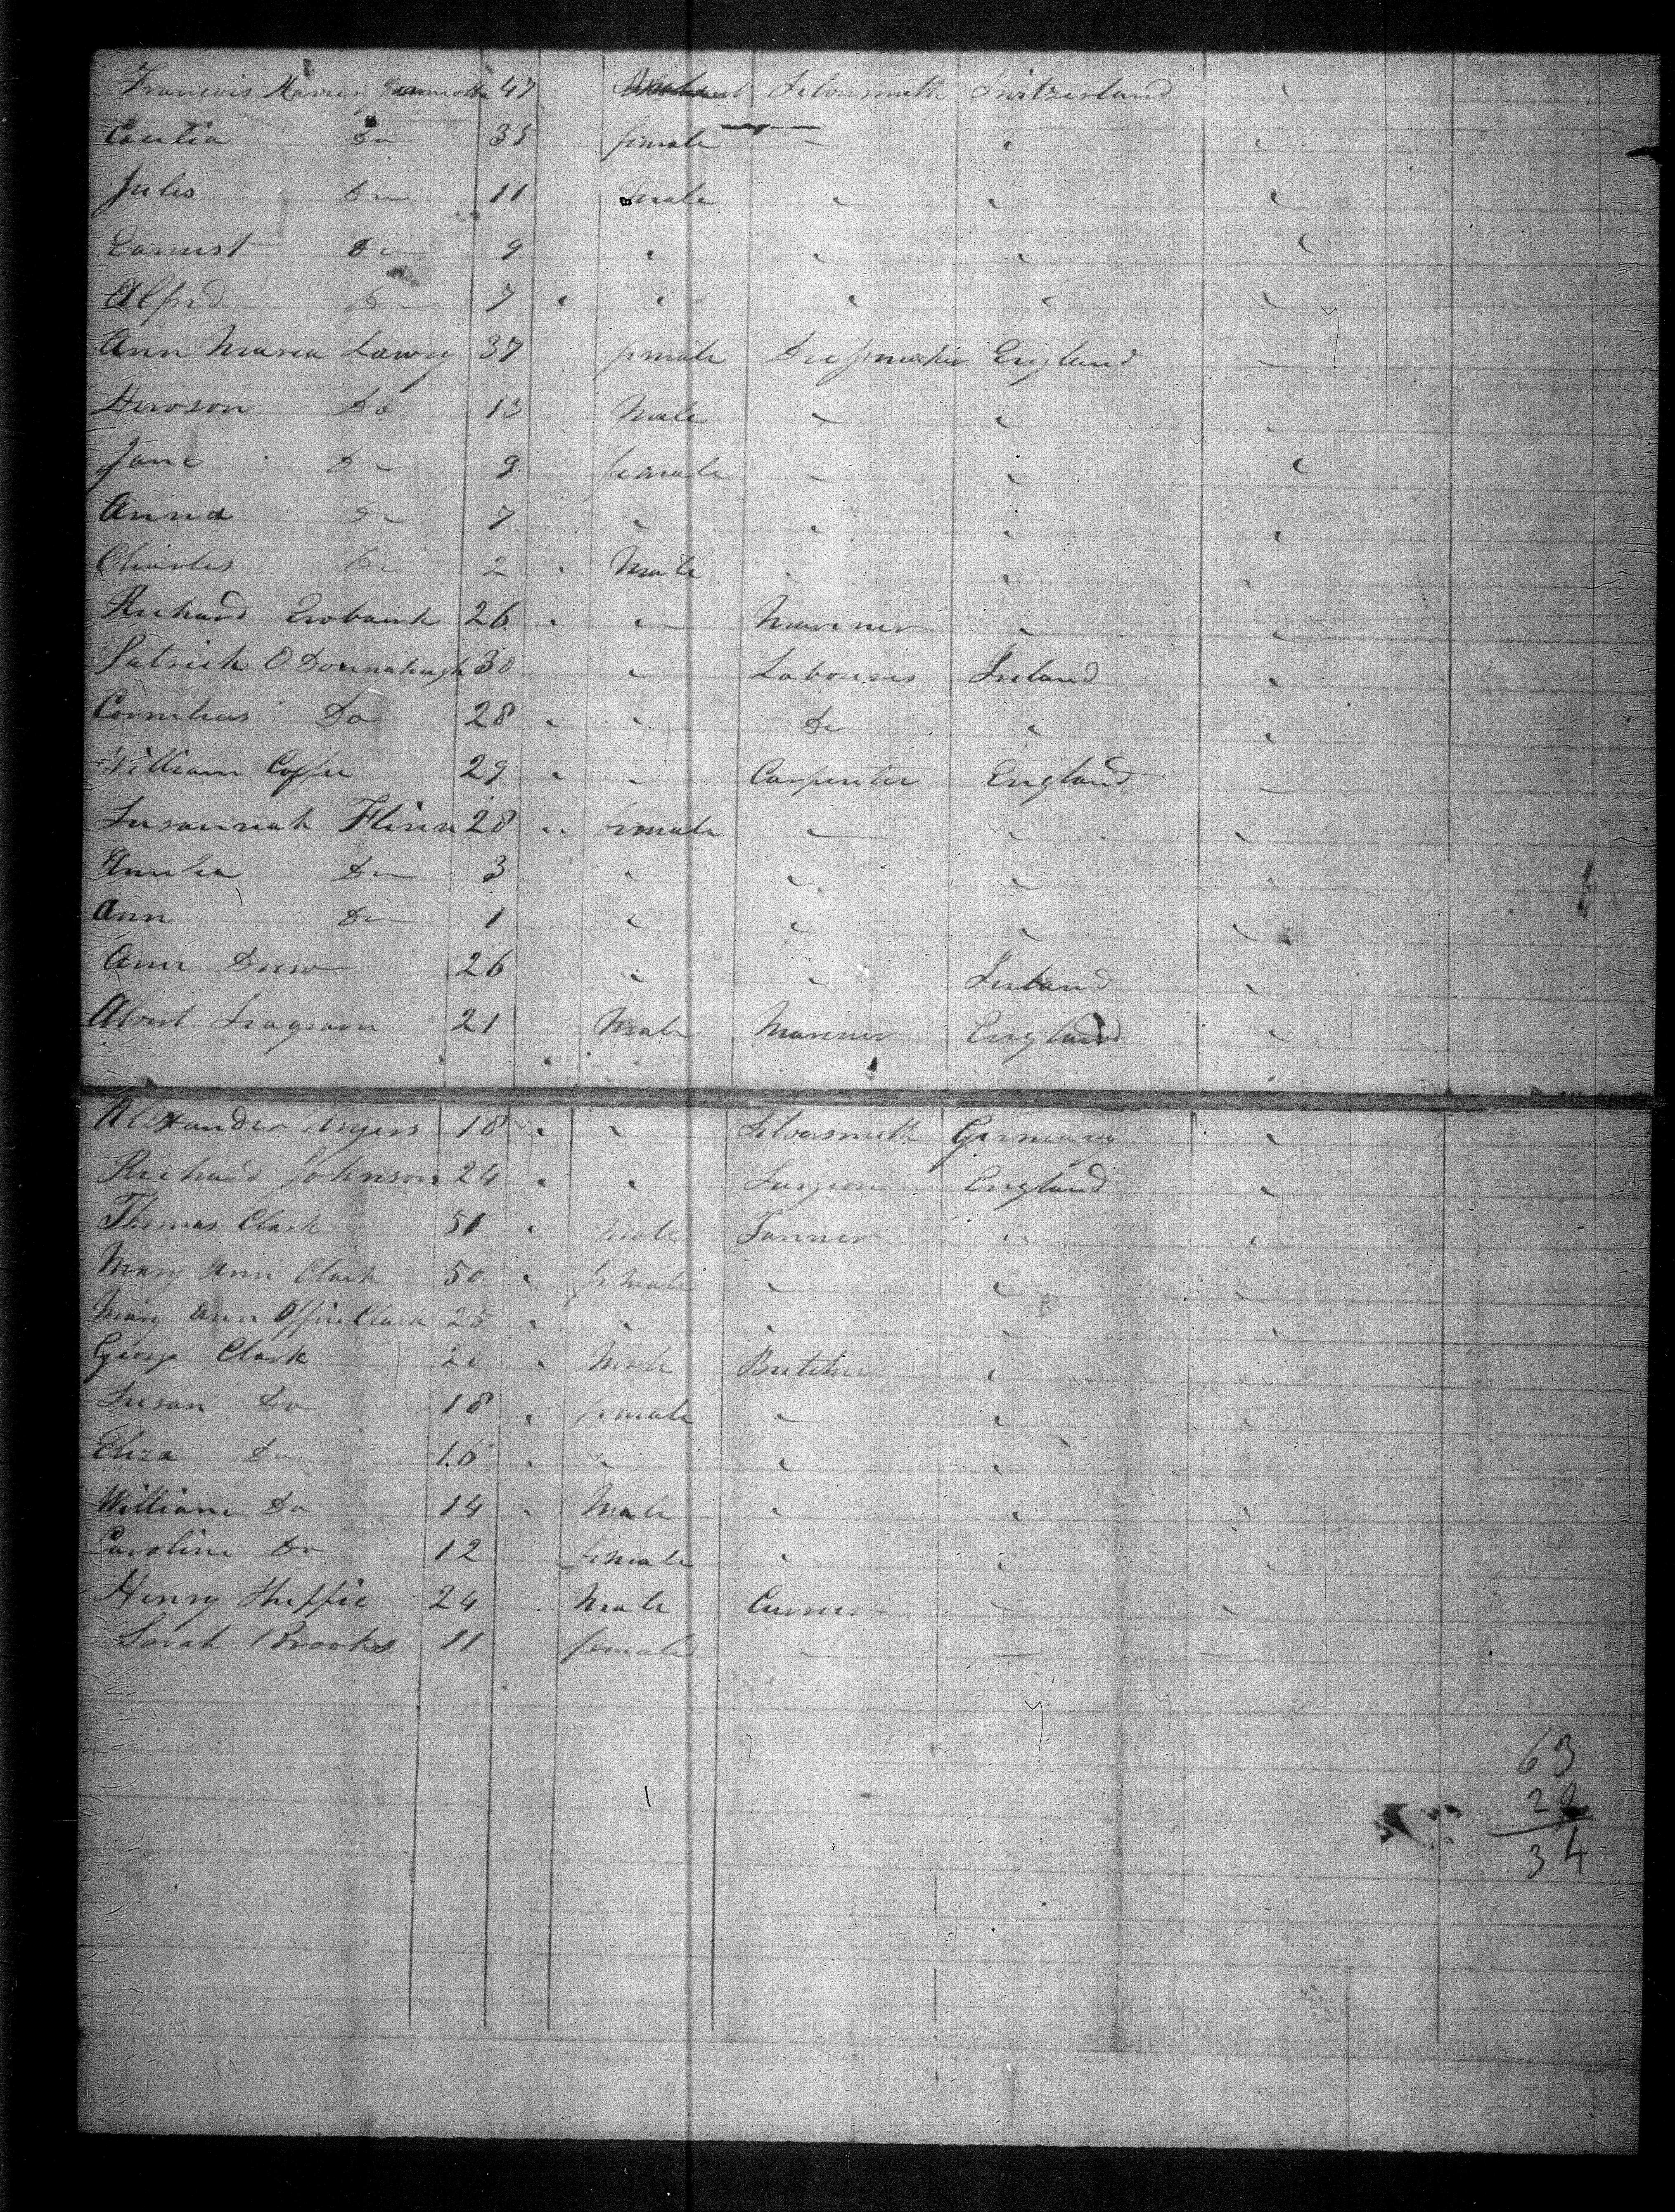 Francois Xavier 47 Silversmith Switzerland
Do 35 female - " "
Jules Do 11 Male " " "
Earnest Do 9 " " " "
Alfred Do 7 " " " " "
Ann Maria Lowry 37 female Dressmaker England -
Hewson Do 13 Male " " "
Jane Do 9 female " " "
Anna Do 7 " " " "
Charles Do 2 " Male " " "
Richard Ewbank 26 " " Mariner " "
Patrick O Donnahugh 30 " Labourer Ireland "
Cornelius Do 28 " " Do " "
William Coffee 29 " " Carpenter England -
Susannah Flinn 28 " female " " "
Amelia Do 3 " " " "
Ann Do 1 " " " "
Ann Drew 26 " " Ireland "
Albert 21 Male Mariner England "
Alexander 18 " " Silversmith Germany "
Richard Johnson 24 " " Surgeon England "
Thomas Clark 51 " Male Tanner " "
Mary Ann Clark 50 " female " " "
Mary Ann Clark 25 " " " " "
George Clark " Male Butcher " "
Susan Do 18 " female " " "
Eliza Do 16 " " " " "
William Do 14 " Male " " "
Caroline Do 12 female " " "
Henry 24 Male Currier " "
Sarah Brooks 11 female - - -
63
34